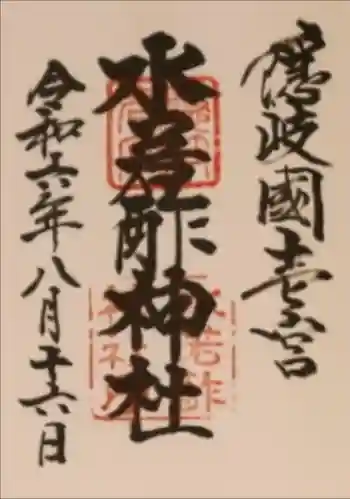 隠岐國壱宮
水若酢神社
令和六年八月十六日